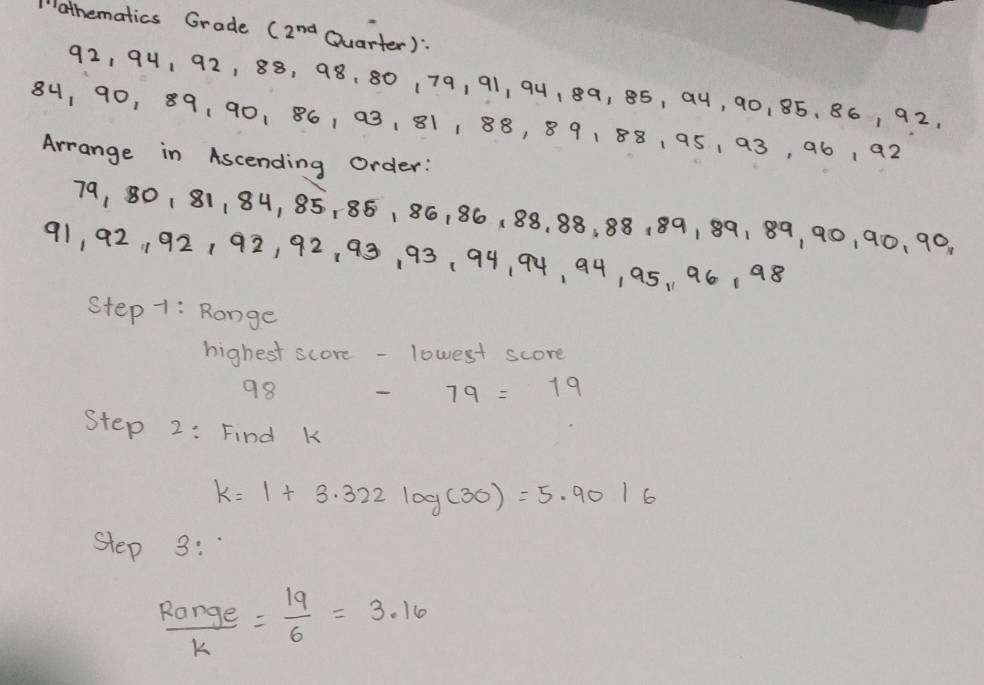 Mathematics Grade (2nd Quarter):
92, 94, 92, 88, 98, 80, 79, 91, 94, 89, 85, 94, 90, 85, 86, 92,
84, 90, 89, 90, 86, 93, 81, 88, 89, 88, 95, 93, 96, 92
Arrange in Ascending Order:
79, 80, 81, 84, 85, 85, 86, 86, 88, 88, 88, 89, 89, 89, 90, 90, 90,
91, 92, 92, 92, 92, 93, 93, 94, 94, 94, 95, 96, 98
Step 1: Range
highest score - lowest score
98 - 79 = 19
Step 2: Find K
K= 1 + 3.322 log(30) = 5.90 | 6
Step 3:
Range/K = 19/6 = 3.16